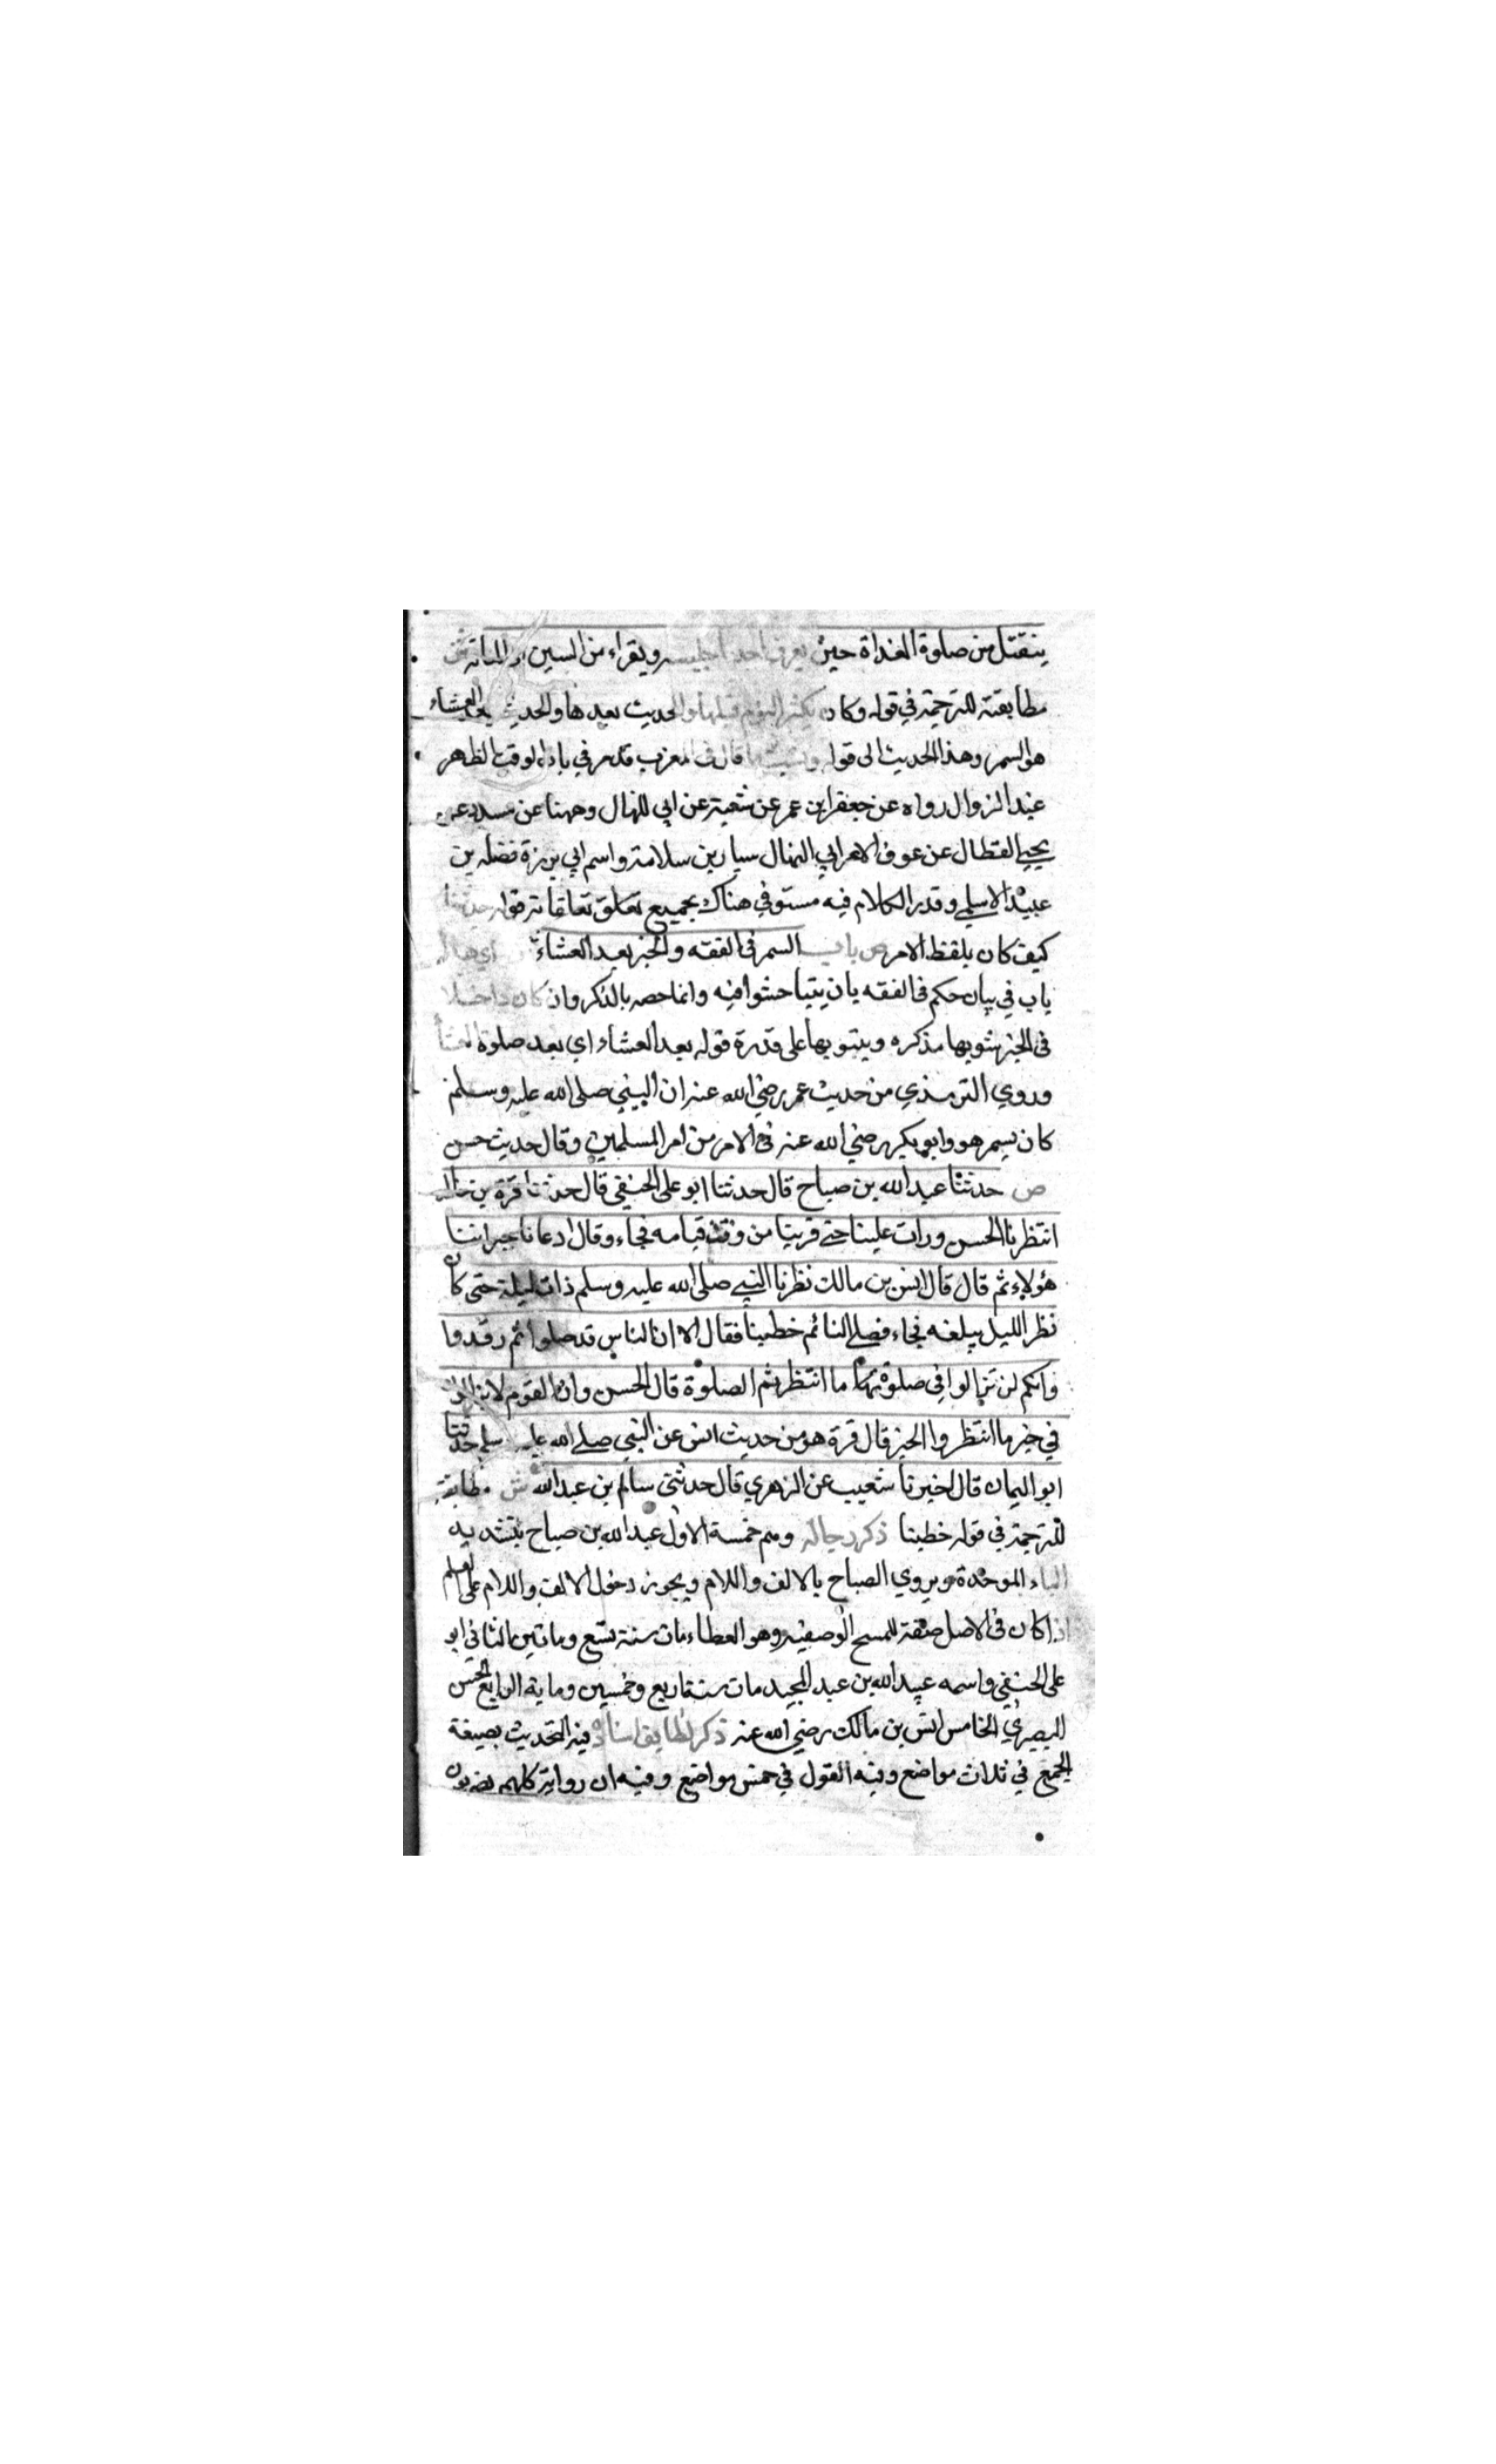 ينقتل من صلوة الغداة حين يعرف احدنا جليسه ويقراء من الستين الى المائة ش
مطابقته للترجمة في قوله وكان يكره النوم قبلها والحديث بعدها والحديث بعد العشاء
هو السمر وهذا الحديث الى قوله قال في المغرب قد مر في باب لوقت الظهر
عند الزوال رواه عن جعفر ابن عمر عن شعبة عن ابي المنهال وههنا عن مسدد عن
يحيى القطال عن عوف الاهرابي النهال سيار بن سلامة واسم ابي برزة فضله بن
عبيد الاسلمي وقد مر الكلام فيه مستوفي هناك بجميع تعلق تعلقاته قوله حدثنا
كيف كان بلقظ الامر ص باب السمر في الفقه والخبر بعد العشاء ش اي هذا
باب في بيان حكم في الفقه بان يتباحثوا فيه وانما خصه بالذكر وان كان داخلا
في الخير بشويها مذكره وينتويها على قدرة قوله بعد العشاء اي بعد صلوة العشا
وروي الترمذي من حديث عمر رضي الله عنه ان النبي صلى الله عليه وسلم
كان يسمر هو وابو بكر رضي الله عنه في الامر من امر المسلمين وقال حديث حسن
ص حدثنا عبد الله بن صباح قال حدثنا ابو على الحنفي قال حدثنا قرة بن خالد
انتظرنا الحسن ورات علينا حتى قريبا من وقت قيامه فجاء وقال ادعانا جيراننا
هؤلاء ثم قال قال انس بن مالك نظرنا النبي صلى الله عليه وسلم ذات ليلة حتى كان
نظر الليل يبلغه فجاء فصلى النائم خطبنا فقال الا ان الناس قد صلوا ثم رقدوا
وانكم لن تزالوا في صلوة ما انتظرتم الصلوة قال الحسن وان القوم لا يزالون
في خير ما انتظروا الخير قال قرة هو من حديث انس عن النبي صلى الله عليه وسلم حدثنا
ابو اليمان قال اخبرنا شعيب عن الزهري قال حدثنى سالم بن عبد الله ش مطابقته
للترجمة في قوله خطبنا ذكر رجاله وهم خمسة الاول عبد الله بن صباح بتشديد
الباء الموحدة ويروي الصباح بالالف واللام ويجوز دخول الالف واللام على العلم
اذا كان في الاصل صفة للمسح الوصفية وهو العطا مات سنة تسع وماتين الثاني ابو
على الحنفي واسمه عبيد الله بن عبد المجيد مات سنة اربع وخمسين وماية الرابع الحسن
البصري الخامس انس بن مالك رضي الله عنه ذكر لطايف اسناده فيه التحديث بصيغة
الجمع في ثلاث مواضع وفيه القول في خمس مواضع وفيه ان رواية كلهم بصريون